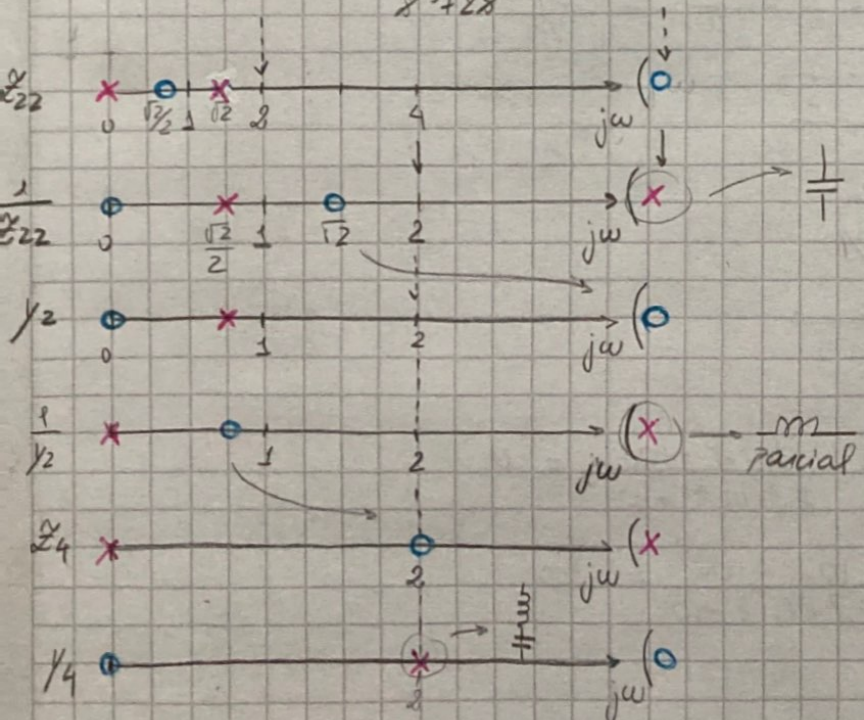 Z22 0 √2/2 1 √2 2 4 jω (
1/Z22 0 √2/2 1 √2 2 jω (
Y2 0 1 2 jω (
1/Y2 1 2 jω ( parcial
Z4 2 jω (
Y4 2 jω (